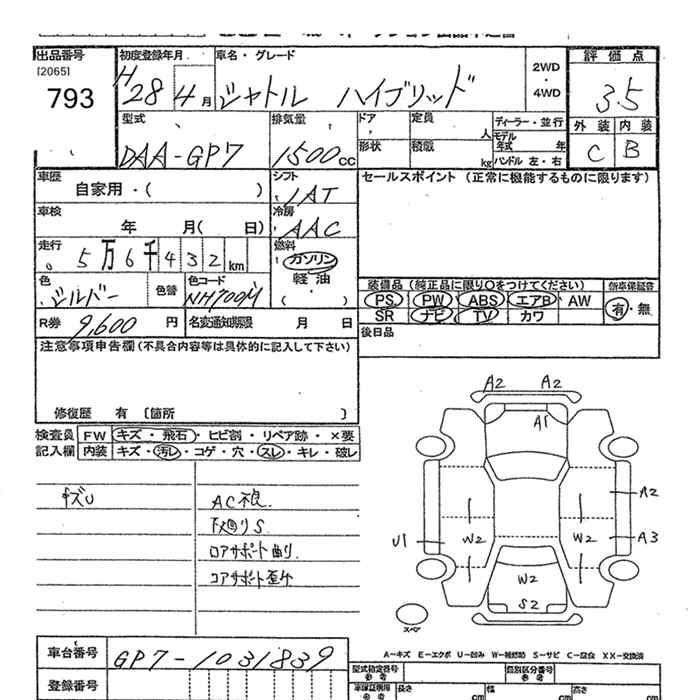 出品番号 初度登録年月 車名・グレード 2WD ・ 4WD 評価点
[2065]
793 H28 4月 シャトル ハイブリッド 3.5
型式 排気量 ドア 定員 人 ディーラー・並行 外装 内装
DAA-GP7 1500cc 形状 積載 kg モデル年式 年 ハンドル 左・右 C B
車歴 自家用・( ) シフト IAT セールスポイント (正常に機能するものに限ります)
車検 年 月( 日) 冷房 AAC
走行 5万6千432km 燃料 ガソリン
軽油
・( )
色 シルバー 色替 色コード NH700M
装備品 (純正品に限り○をつけてください) 新車保証書
PS PW ABS エアB AW 有・無
SR ナビ TV カワ
R券 9,600円 名変通知期限 月 日
後日品
注意事項申告欄(不具合内容等は具体的に記入して下さい)
修復歴 有 〔箇所 〕
検査員 FW キズ・飛石・ヒビ割・リペア跡・×要
記入欄 内装 キズ・汚レ・コゲ・穴・スレ・キレ・破レ
キズU
AC不良
下廻りS
ロアサポート曲り
コアサポート歪み
A2 A2
A1
A2
U1 W2 W2 A3
W2
S2
スペア
A-キズ E-エクボ U-凹み W-補修跡 S-サビ C-腐食 XX-交換済
車台番号 GP7-1031839
型式指定番号 参考 類別区分番号 参考
登録番号 車庫証明用 参考 長さ cm 幅 cm 高さ cm